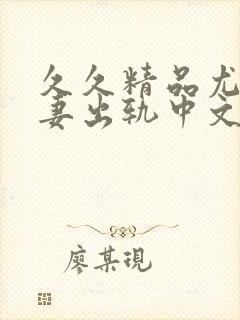 久久精品尤
妻出轨中文
廖某現